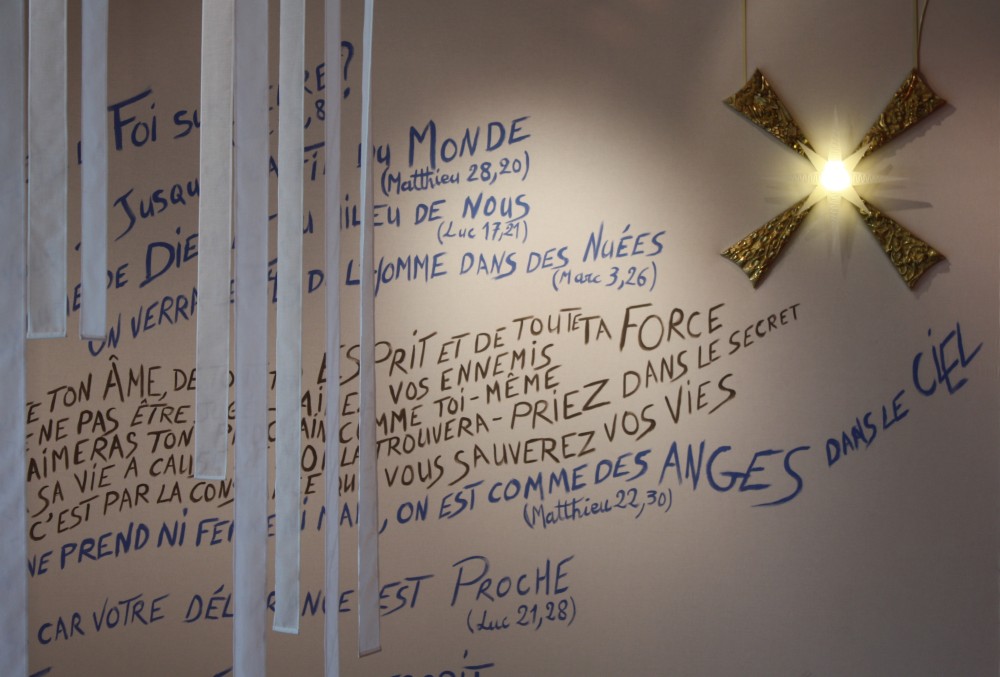 Foi su ?
,8
Jusqu du MONDE
(Matthieu 28,20)
DE DIE MILIEU DE NOUS
(Luc 17,21)
ON VERRA DE L'HOMME DANS DES NUÉES
(Marc 3,26)
TON ÂME, DE ESPRIT ET DE TOUTE TA FORCE
NE PAS ÊTRE VOS ENNEMIS
AIMERAS TON COMME TOI-MÊME
SA VIE À CAU LA TROUVERA - PRIEZ DANS LE SECRET
C'EST PAR LA CONS VOUS SAUVEREZ VOS VIES
NE PREND NI FE NI MA , ON EST COMME DES ANGES DANS LE CIEL
(Matthieu 22,30)
CAR VOTRE DÉL EST PROCHE
(Luc 21,28)